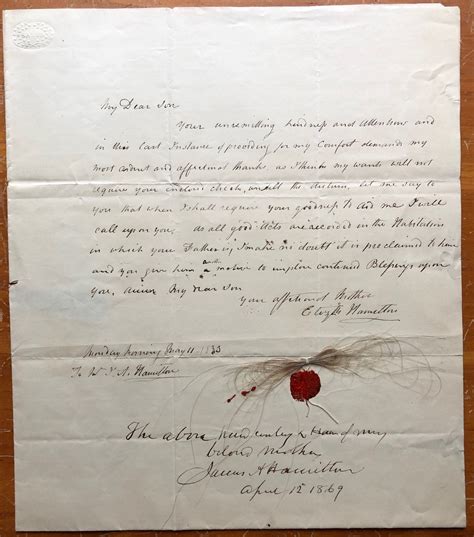 My Dear Son
Your unremitting kindness and Attentions and
in this last Instance of providing for my Comfort demands my
most ardent and affectional thanks, as I think my wants will not
require your inclosed check, untill the Autumn, let me say to
you that when I shall require your goodness to aid me I will
call upon you, as all good Acts are recorded in the Habitation
in which your Father is, I make no doubt it is proclaimed to him
and you give him a mother to implore continued Blessings upon
you, my dear Son
Your affectional Mother
Elizth Hamilton
Monday morning May 11 1833
To A. Hamilton
The above & of my
beloved Mother
James A Hamilton
April 12 1869